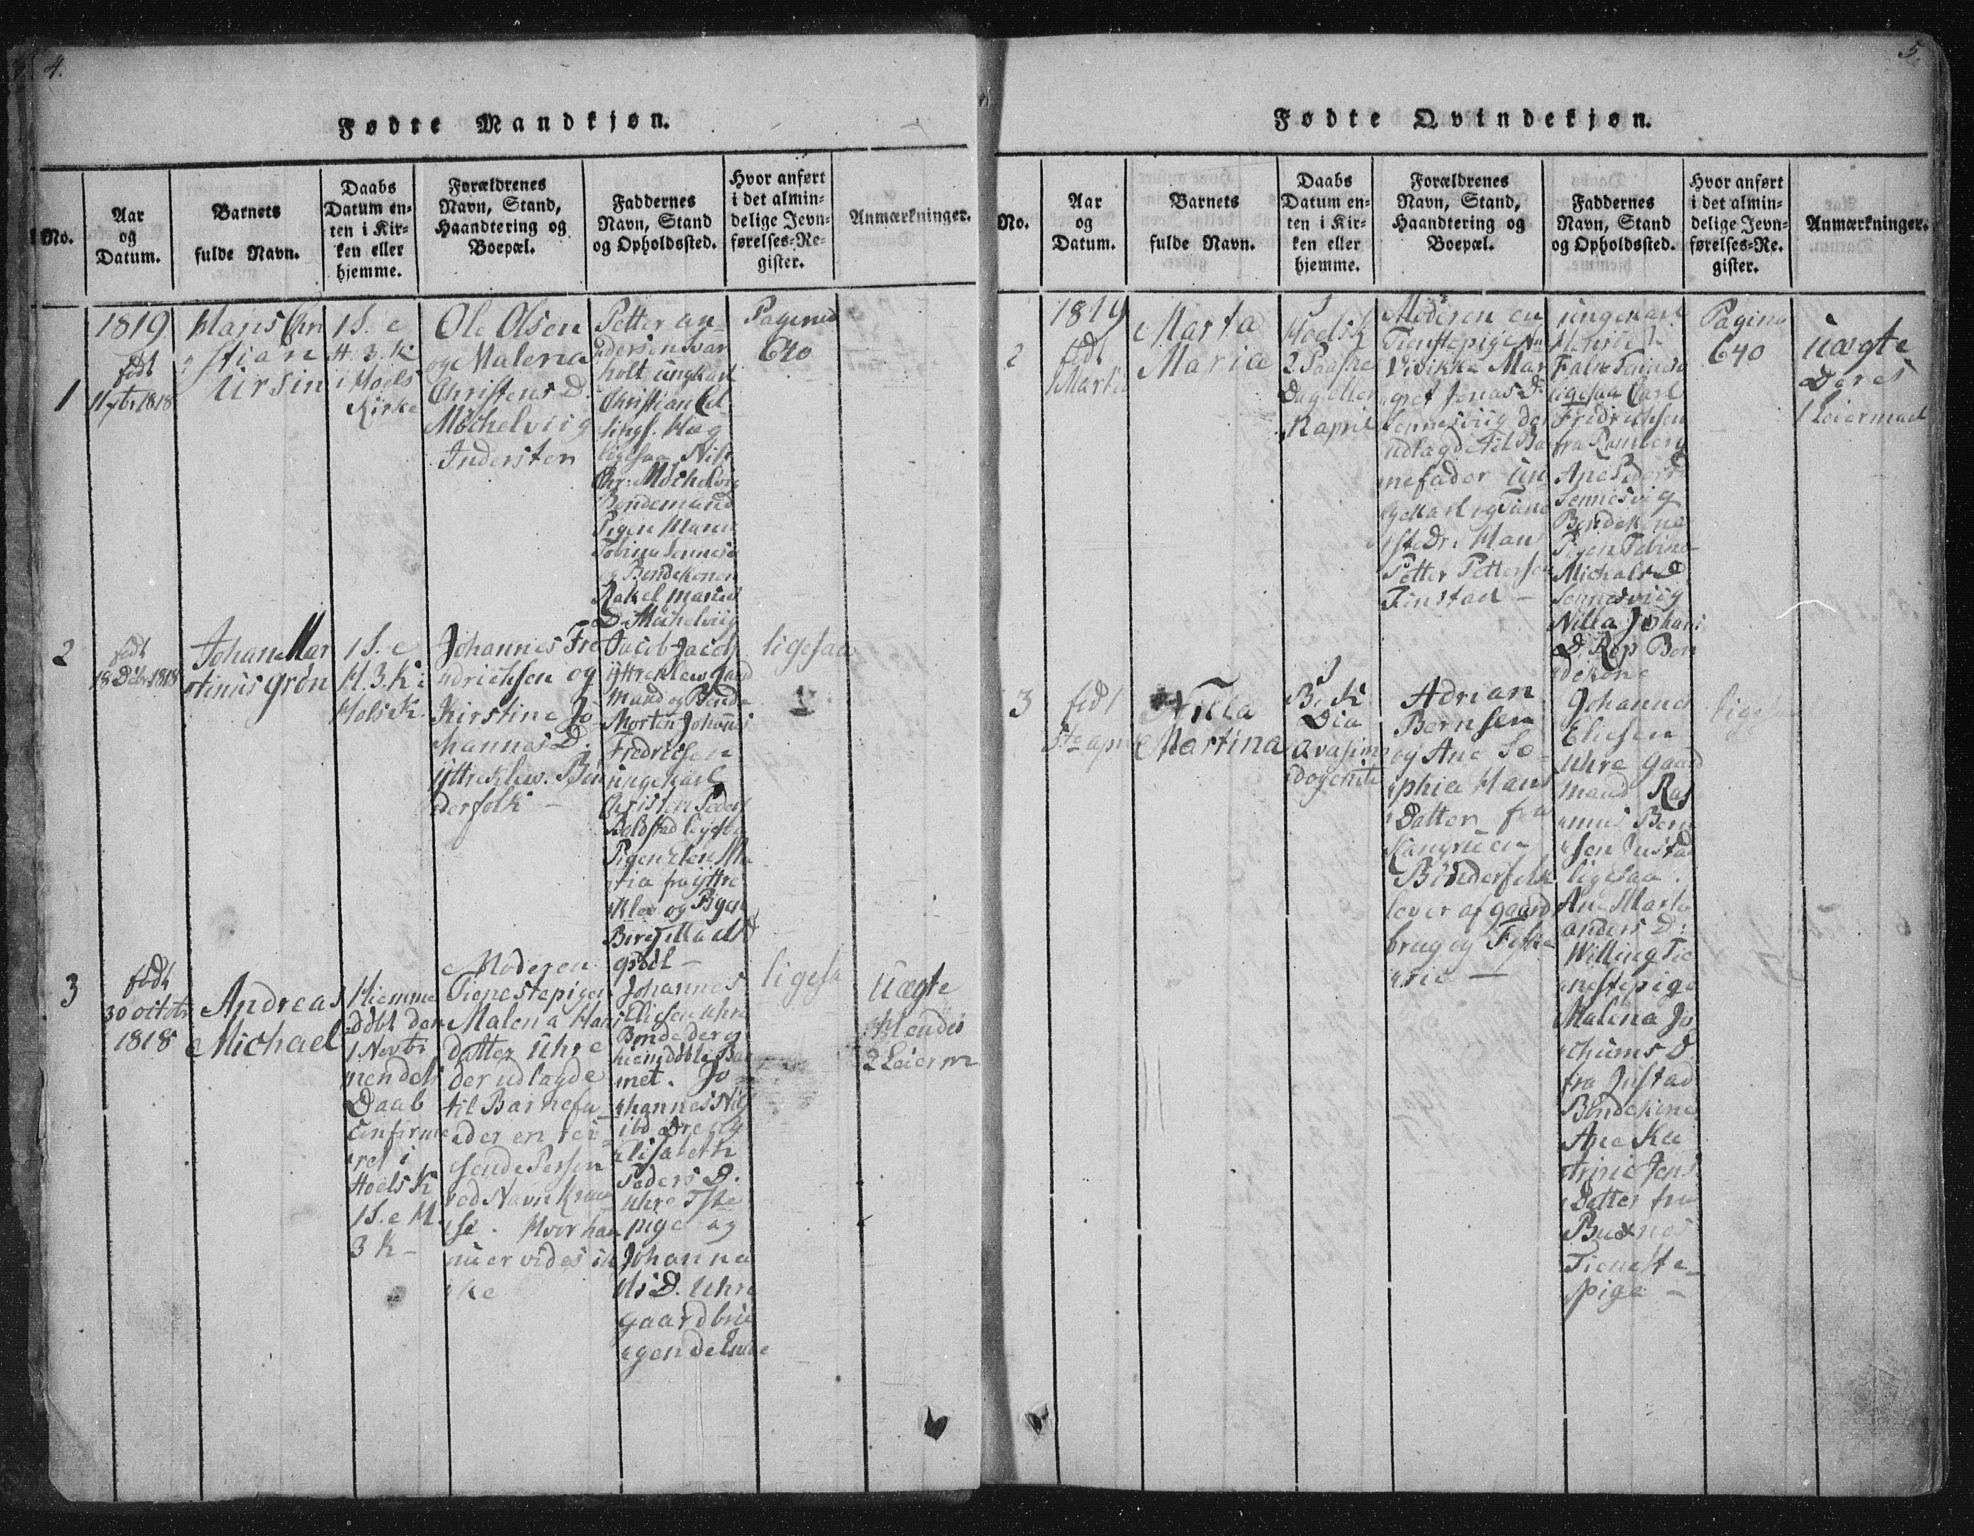 4.
Fødte Mandkjøn.
No.
Aar
og
Datum.
Barnets
fulde Navn.
Daabs
Datum en-
ten i Kir-
ken eller
hjemme.
Forældrenes
Navn, Stand,
Haandtering og
Boepæl.
Faddernes
Navn, Stand
og Opholdssted.
Hvor anført
i det almin-
delige Jevn-
førelses-Re-
gister.
Anmærkninger.
1
1819
født
1818
Hans Chri
stian
Ursin
1 S. e
H. 3. K
i Hoels
Kirke
Ole Olsen
og Malena
Christens D.
Möchelviig
Indersten
Petter an
dersen Svar
holt ungkarl
Christian
ligesaa Nils
Chr. Möchelvig
Bondemand
Pigen Maren
Tobina Sennes
og Bondekonen
Rakel Martin
D. Möchelviig
Pagina
640
2
født
18 Dcbr 1818
Johan Mar
tinus Grön
1 S. e
H. 3. K i
Hols K.
Johannes Fre
drichsen og
Kirstine Jo
hannas D.
Yttreklev. Bön
derfolk –
Jacob Jacob
Yttreklev gaard
Mand og Bonde
Morten Johans
Fredrecsen
ungekarl
Christen Peders
Baldstad ligesaa
Pigen Elen Ma
ria fra yttre
Klev og Pigen
Beret
ligesaa
3
födt
30 octobr
1818
Andreas
Michael
Hiemme
döbt den
1 Novbr
men dets
Daab
Confirme
ret i
Hoels K
1 S. e H.
3 K –
Moderen
Tienestepigen
Malena Hans
datter Uhre
der udlagde
til Barnefa
der en rei
sende Person
ved Navn
se. Hvor han
nu er vides ik
ke
Johannes
Elisen Uhre
Bonde der og
hiemdöbte Bar
net. Jo
hannes Nils
ibd Dreng
Elisabeth
Peders D.
Uhre Tste
pige og
Johanna
Nls D. Uhre
gaardbru
gende Enke
ligesa
Uægte
Hendes
2 Leierm
5.
Fødte Qvindekjøn.
No.
Aar
og
Datum.
Barnets
fulde Navn.
Daabs
Datum en-
ten i Kir-
ken eller
hjemme.
Forældrenes
Navn, Stand,
Haandtering og
Boepæl.
Faddernes
Navn, Stand
og Opholdssted.
Hvor anført
i det almin-
delige Jevn-
førelses-Re-
gister.
Anmærkninger.
2
1819
född
Marti
Marta
Maria
I
Hoels K
2 Paaske
Dag eller
12 april
Moderen en
Tienstepige
Vivikke Mar
gret Jonas D.
Sennesviig der
udlagde til Bar
nefader un
gekarl og Tiene
ste Dr. Hans
Petter Petterson
Finstad –
ungekarl
Henric
Falk
ligesaa Carl
Fridrichsen
fra Ramberg
Ane Peders
Sennesvig
Bondekone
Pigen Tobine
Michals D
Sennesviig
Nilla Johans
D. Röp Bon
dekone
Pagina
640
Uægte
Deres
1 Leiermaal
3
födt
5te april
Nilla
Martina
I
B. K
Dca
Qvasimo
dogeniti
Adrian
Bernsen
og Ane So
phia Hans
Datter fra
Bönderfolk
lever af gaard
brug og Fiske
rie –
Johannes
Eliesen
Uhre Gaard
mand Ras
mus Bern
sen Justad
ligesaa.
Ane Marta
anders D:
Willing Tie
nestepige
Malena Jo
chums D
fra Justad
Bondekone
Ane Ka
trine Jens
Datter fra
Buxnes
Tieneste
pige –
ligesa